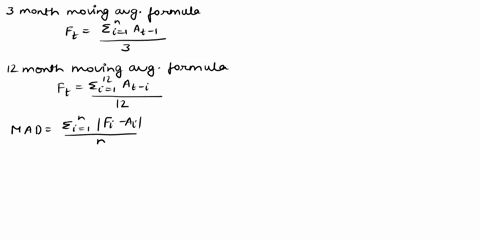 3 month moving avg. formula
Fₜ = Σᵢ₌₁ⁿ Aₜ₋₁ / 3
12 month moving avg. formula
Fₜ = Σᵢ₌₁¹² Aₜ₋ᵢ / 12
MAD = Σᵢ₌₁ⁿ |Fᵢ - Aᵢ| / n